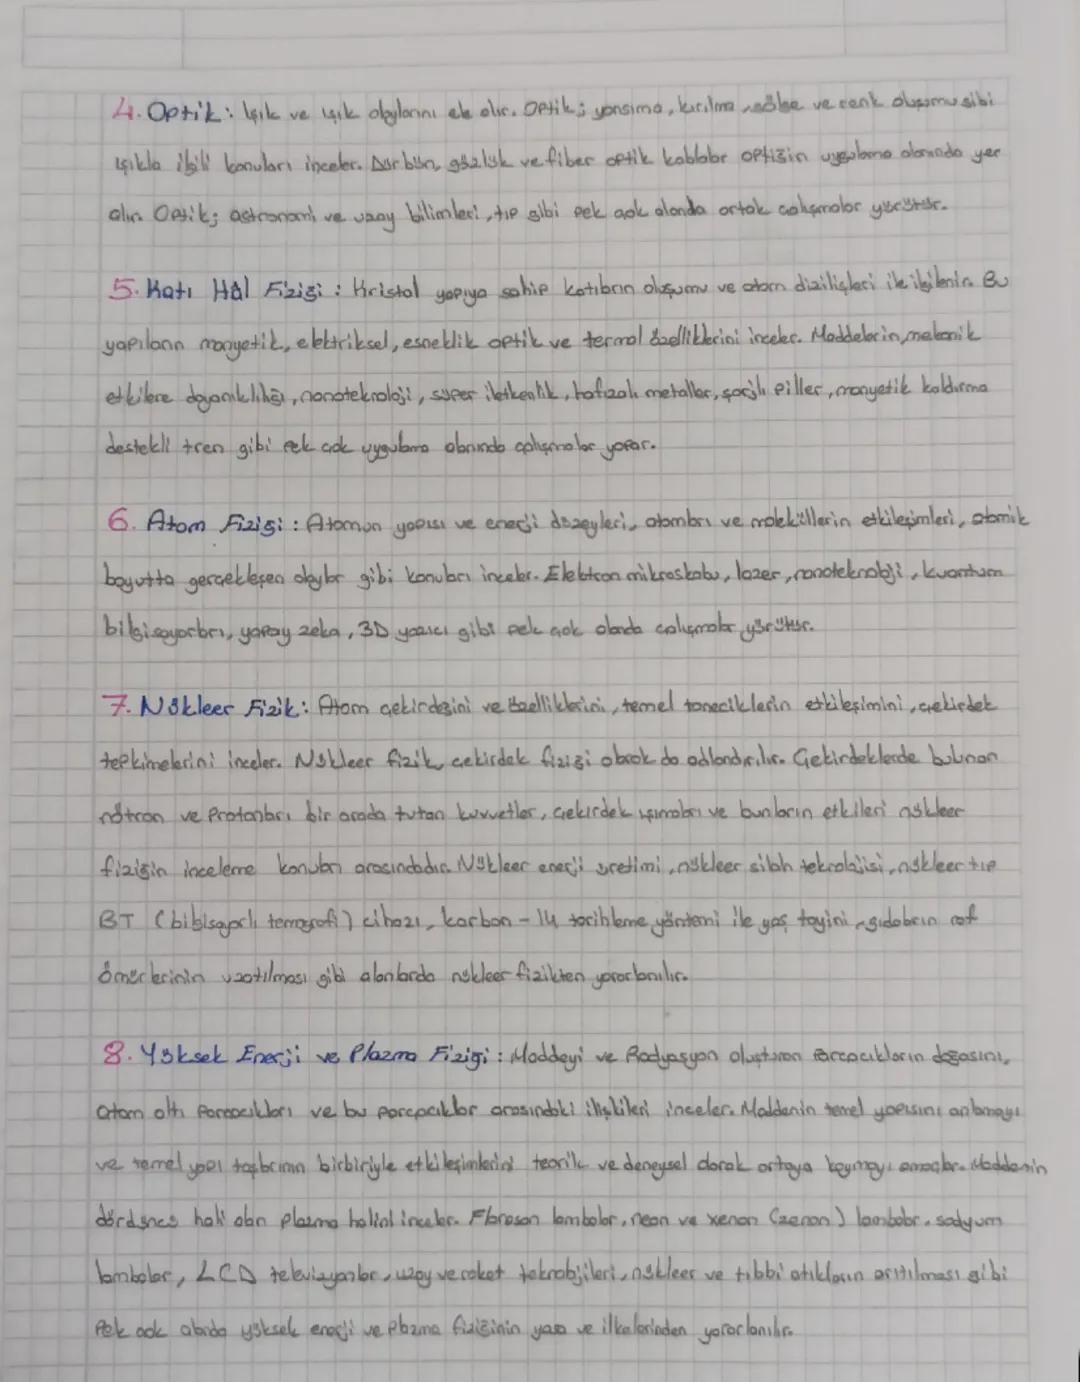 4. Optik: Işık ve ışık olaylarını ele alır. Optik; yansıma, kırılma, gölge ve renk oluşumu gibi
ışıkla ilgili konuları inceler. Dürbün, gözlük ve fiber optik kablolar optiğin uygulama alanında yer
alır. Optik; astronomi ve uzay bilimleri, tıp gibi pek çok alanda ortak çalışmalar yürütür.
5. Katı Hâl Fiziği: Kristal yapıya sahip katıların oluşumu ve atom dizilişleri ile ilgilenir. Bu
yapıların manyetik, elektriksel, esneklik optik ve termal özelliklerini inceler. Maddelerin, mekanik
etkilere dayanıklılığı, nanoteknoloji, süper iletkenlik, hafızalı metaller, şarjlı piller, manyetik kaldırma
destekli tren gibi pek çok uygulama alanında çalışmalar yapar.
6. Atom Fiziği: Atomun yapısı ve enerji düzeyleri, atomları ve moleküllerin etkileşimleri, atomik
boyutta gerçekleşen olaylar gibi konuları inceler. Elektron mikroskobu, lazer, nanoteknoloji, kuantum
bilgisayarları, yapay zeka, 3D yazıcı gibi pek çok alanda çalışmalar yürütür.
7. Nükleer Fizik: Atom çekirdeğini ve özelliklerini, temel taneciklerin etkileşimini, çekirdek
tepkimelerini inceler. Nükleer fizik, çekirdek fiziği olarak da adlandırılır. Çekirdeklerde bulunan
nötron ve Protonları bir arada tutan kuvvetler, çekirdek ışımaları ve bunların etkileri nükleer
fiziğin inceleme konuları arasındadır. Nükleer enerji üretimi, nükleer silah teknolojisi, nükleer tıp
BT (bilgisayarlı tomografi) cihazı, karbon - 14 tarihleme yöntemi ile yaş tayini, gıdaların raf
ömürlerinin uzatılması gibi alanlarda nükleer fizikten yararlanılır.
8. Yüksek Enerji ve Plazma Fiziği: Maddeyi ve Radyasyon oluşturan Parçacıkların doğasını,
atom altı Parçacıkları ve bu parçacıklar arasındaki ilişkileri inceler. Maddenin temel yapısını anlamayı
ve temel yapı taşlarının birbiriyle etkileşimlerini teorik ve deneysel olarak ortaya koymayı amaçlar. Maddenin
dördüncü hali olan plazma halini inceler. Floresan lambalar, neon ve xenon (zenon) lambalar, sodyum
lambalar, LCD televizyonlar, uzay ve roket teknolojileri, nükleer ve tıbbi atıkların arıtılması gibi
Pek çok alanda yüksek enerji ve Plazma fiziğinin yasa ve ilkelerinden yararlanılır.